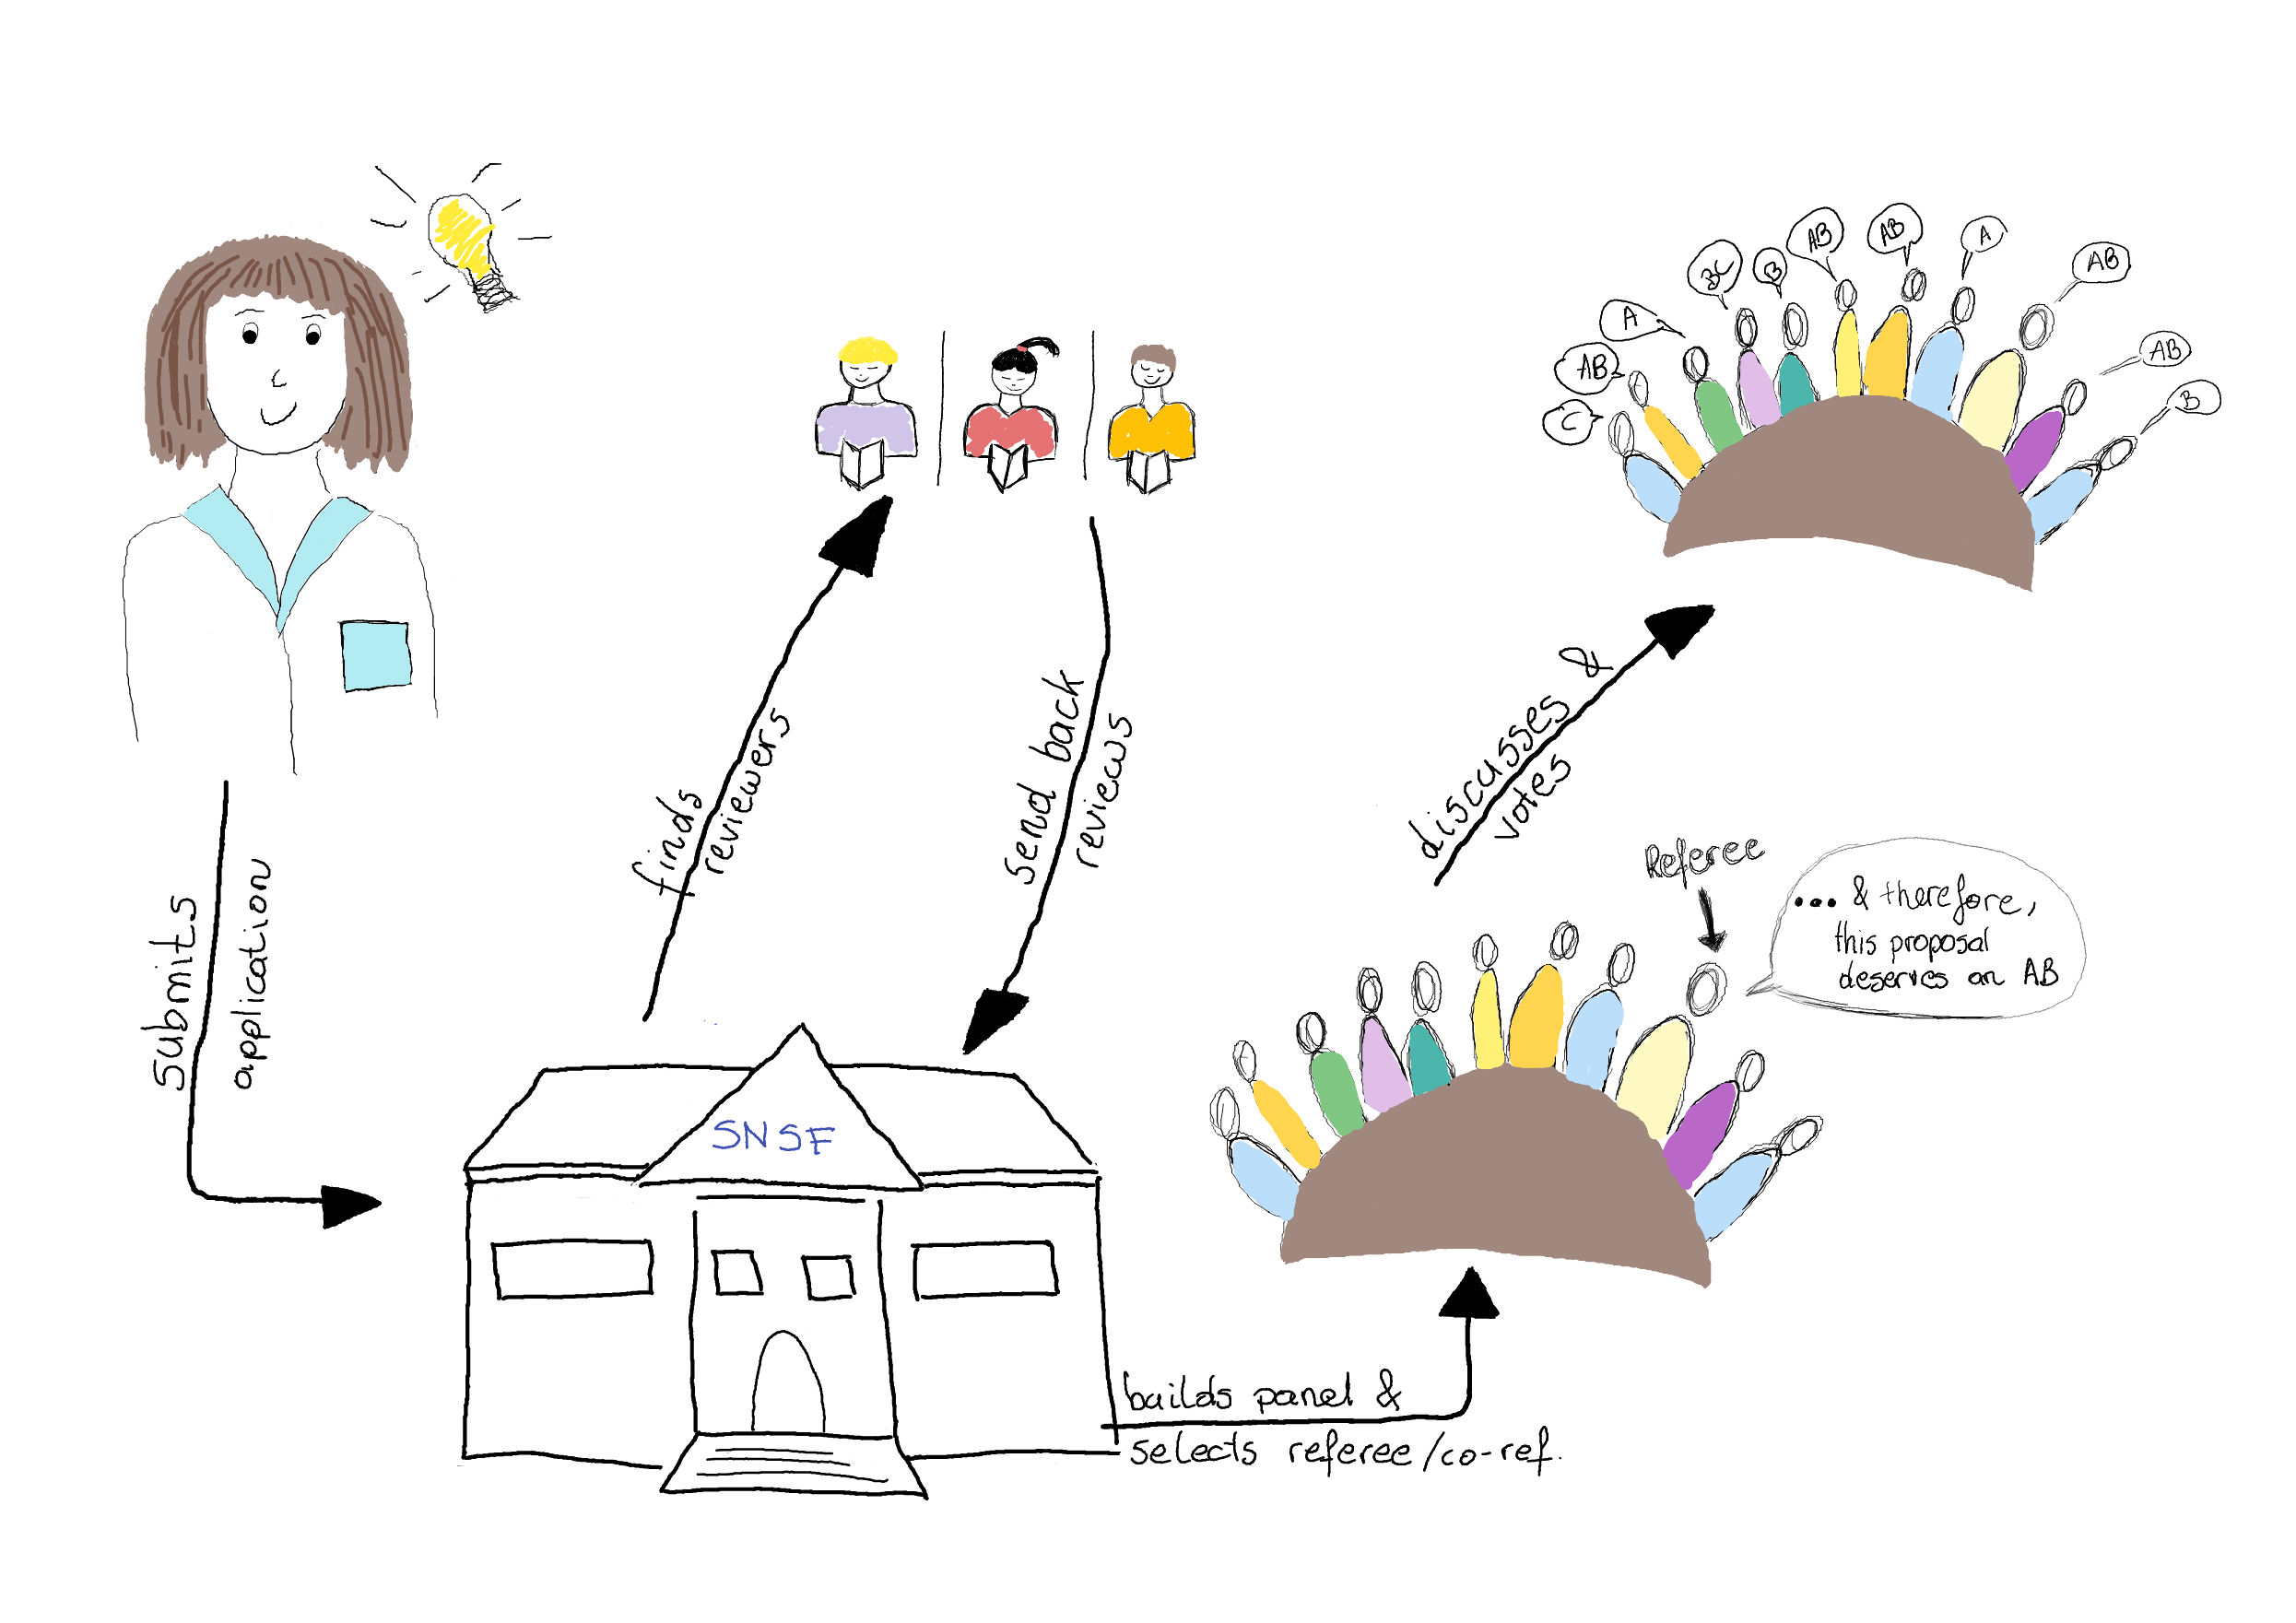 submits
application
SNSF
finds
reviewers
send back
reviews
builds panel &
selects referee/co-ref.
Referee
... & therefore,
this proposal
deserves an AB
discusses &
votes
C
AB
A
BC
B
AB
AB
A
AB
AB
B